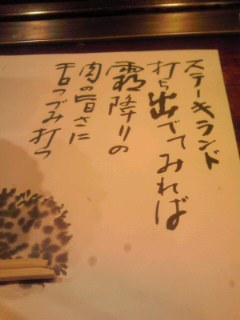 ステーキランド
打ち出でてみれば
霜降りの
肉の旨さに
舌つづみ打つ